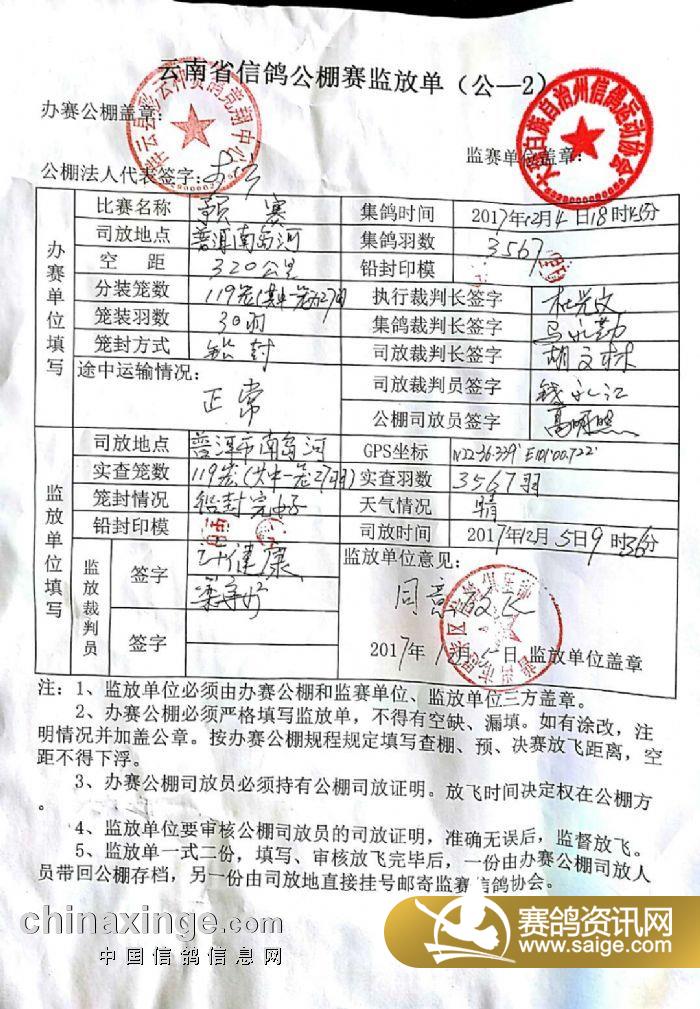 云南省信鸽公棚赛监放单（公—2）
办赛公棚盖章：
监赛单位盖章：
大 白族自治州信鸽运动协会
公棚法人代表签字：
办赛单位填写
比赛名称 预赛 集鸽时间 2017年12月4日18时45分
司放地点 普洱南岛河 集鸽羽数 3567
空距 320公里 铅封印模
分装笼数 119笼(其中一笼为27羽) 执行裁判长签字
笼装羽数 30羽 集鸽裁判长签字 马永勤
笼封方式 铅封 司放裁判长签字 胡文林
途中运输情况： 正常 司放裁判员签字 钱永江
公棚司放员签字
监放单位填写
司放地点 普洱市南岛河 GPS坐标 N22°36.339′ E101°00.722′
实查笼数 119笼(其中一笼27羽) 实查羽数 3567羽
笼封情况 铅封完好 天气情况 晴
铅封印模 司放时间 2017年12月5日9时36分
监放裁判员 签字 健康
签字
监放单位意见：
同意放飞
2017年12月5日 监放单位盖章
注：1、监放单位必须由办赛公棚和监赛单位、监放单位三方盖章。
2、办赛公棚必须严格填写监放单，不得有空缺、漏填。如有涂改，注
明情况并加盖公章。按办赛公棚规程规定填写查棚、预、决赛放飞距离，空
距不得下浮。
3、办赛公棚司放员必须持有公棚司放证明。放飞时间决定权在公棚方
。
4、监放单位要审核公棚司放员的司放证明，准确无误后，监督放飞。
5、监放单一式二份，填写、审核放飞完毕后，一份由办赛公棚司放人
员带回公棚存档，另一份由司放地直接挂号邮寄监赛信鸽协会。
chinaxinge.com
中国信鸽信息网
赛鸽资讯网
www.saige.com